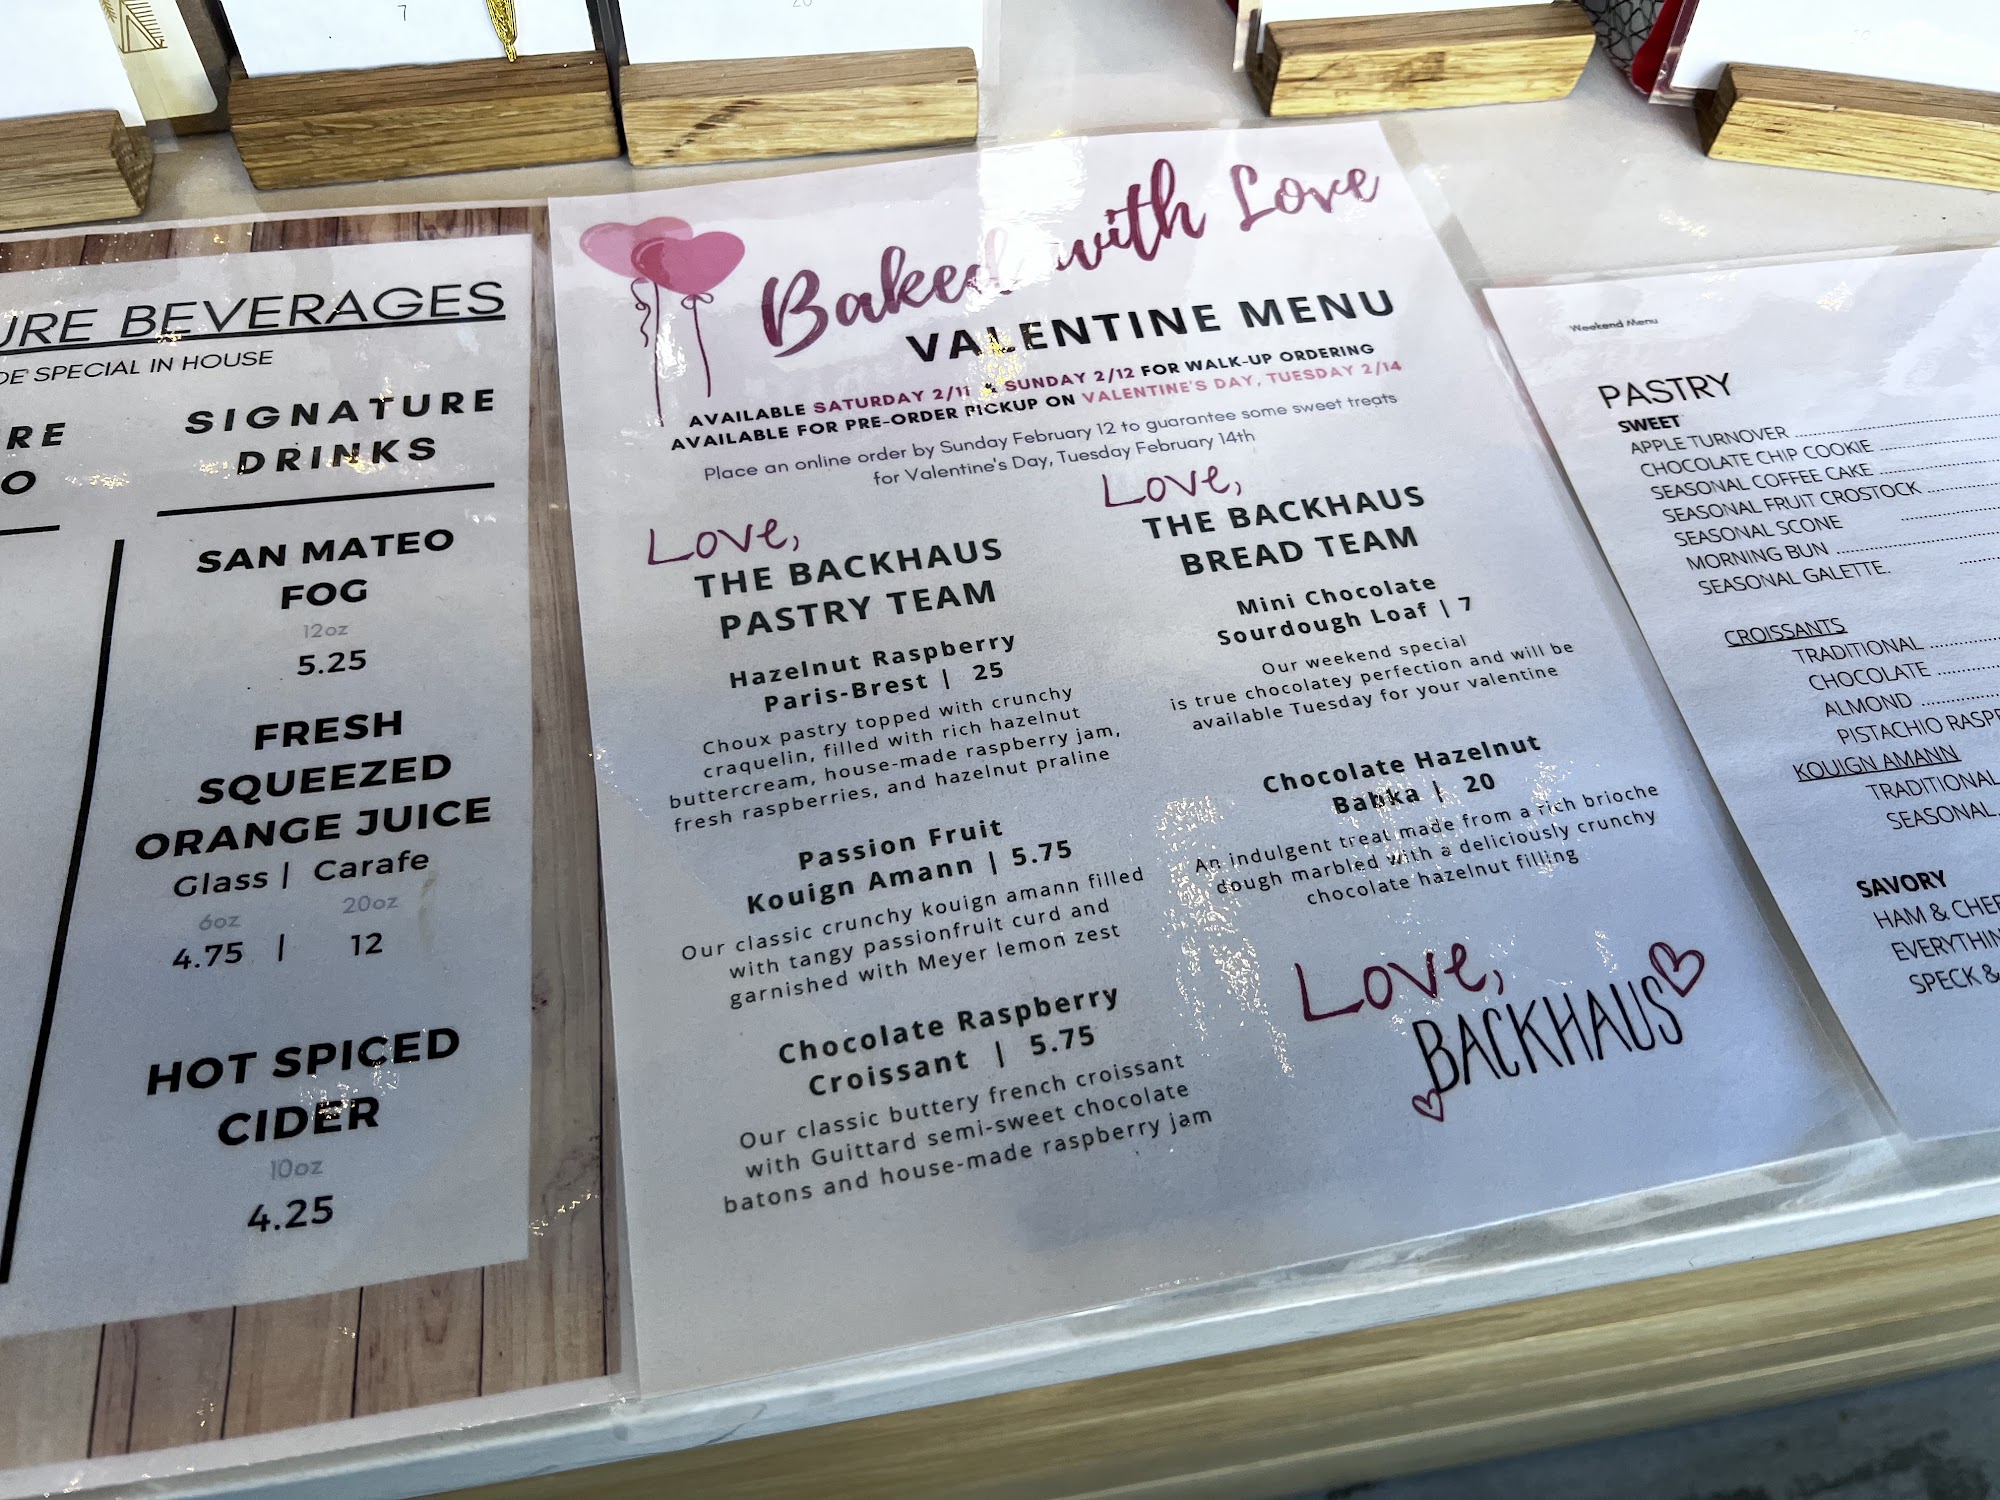 7
20
URE BEVERAGES
DE SPECIAL IN HOUSE
RE
O
SIGNATURE
DRINKS
SAN MATEO
FOG
12oz
5.25
FRESH
SQUEEZED
ORANGE JUICE
Glass | Carafe
6oz 20oz
4.75 | 12
HOT SPICED
CIDER
10oz
4.25
Baked with Love
VALENTINE MENU
AVAILABLE SATURDAY 2/11 & SUNDAY 2/12 FOR WALK-UP ORDERING
AVAILABLE FOR PRE-ORDER PICKUP ON VALENTINE'S DAY, TUESDAY 2/14
Place an online order by Sunday February 12 to guarantee some sweet treats
for Valentine's Day, Tuesday February 14th
Love,
THE BACKHAUS
PASTRY TEAM
Hazelnut Raspberry
Paris-Brest | 25
Choux pastry topped with crunchy
craquelin, filled with rich hazelnut
buttercream, house-made raspberry jam,
fresh raspberries, and hazelnut praline
Passion Fruit
Kouign Amann | 5.75
Our classic crunchy kouign amann filled
with tangy passionfruit curd and
garnished with Meyer lemon zest
Chocolate Raspberry
Croissant | 5.75
Our classic buttery french croissant
with Guittard semi-sweet chocolate
batons and house-made raspberry jam
Love,
THE BACKHAUS
BREAD TEAM
Mini Chocolate
Sourdough Loaf | 7
Our weekend special
is true chocolatey perfection and will be
available Tuesday for your valentine
Chocolate Hazelnut
Babka | 20
An indulgent treat made from a rich brioche
dough marbled with a deliciously crunchy
chocolate hazelnut filling
Love,
BACKHAUS
Weekend Menu
PASTRY
SWEET
APPLE TURNOVER
CHOCOLATE CHIP COOKIE
SEASONAL COFFEE CAKE
SEASONAL FRUIT CROSTOCK
SEASONAL SCONE
MORNING BUN
SEASONAL GALETTE.
CROISSANTS
TRADITIONAL
CHOCOLATE
ALMOND
PISTACHIO RASP
KOUIGN AMANN
TRADITIONAL
SEASONAL
SAVORY
HAM & CHEE
EVERYTHIN
SPECK &